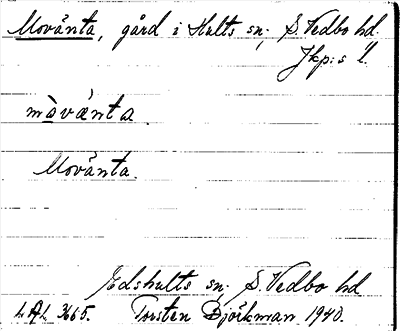 Movänta, gård i Hults sn, S. Vedbo hd.
Jkp:s l.
mòvánta
Movänta.
Edshults sn. S. Vedbo hd
LAL 3665. Torsten Björkman 1940.